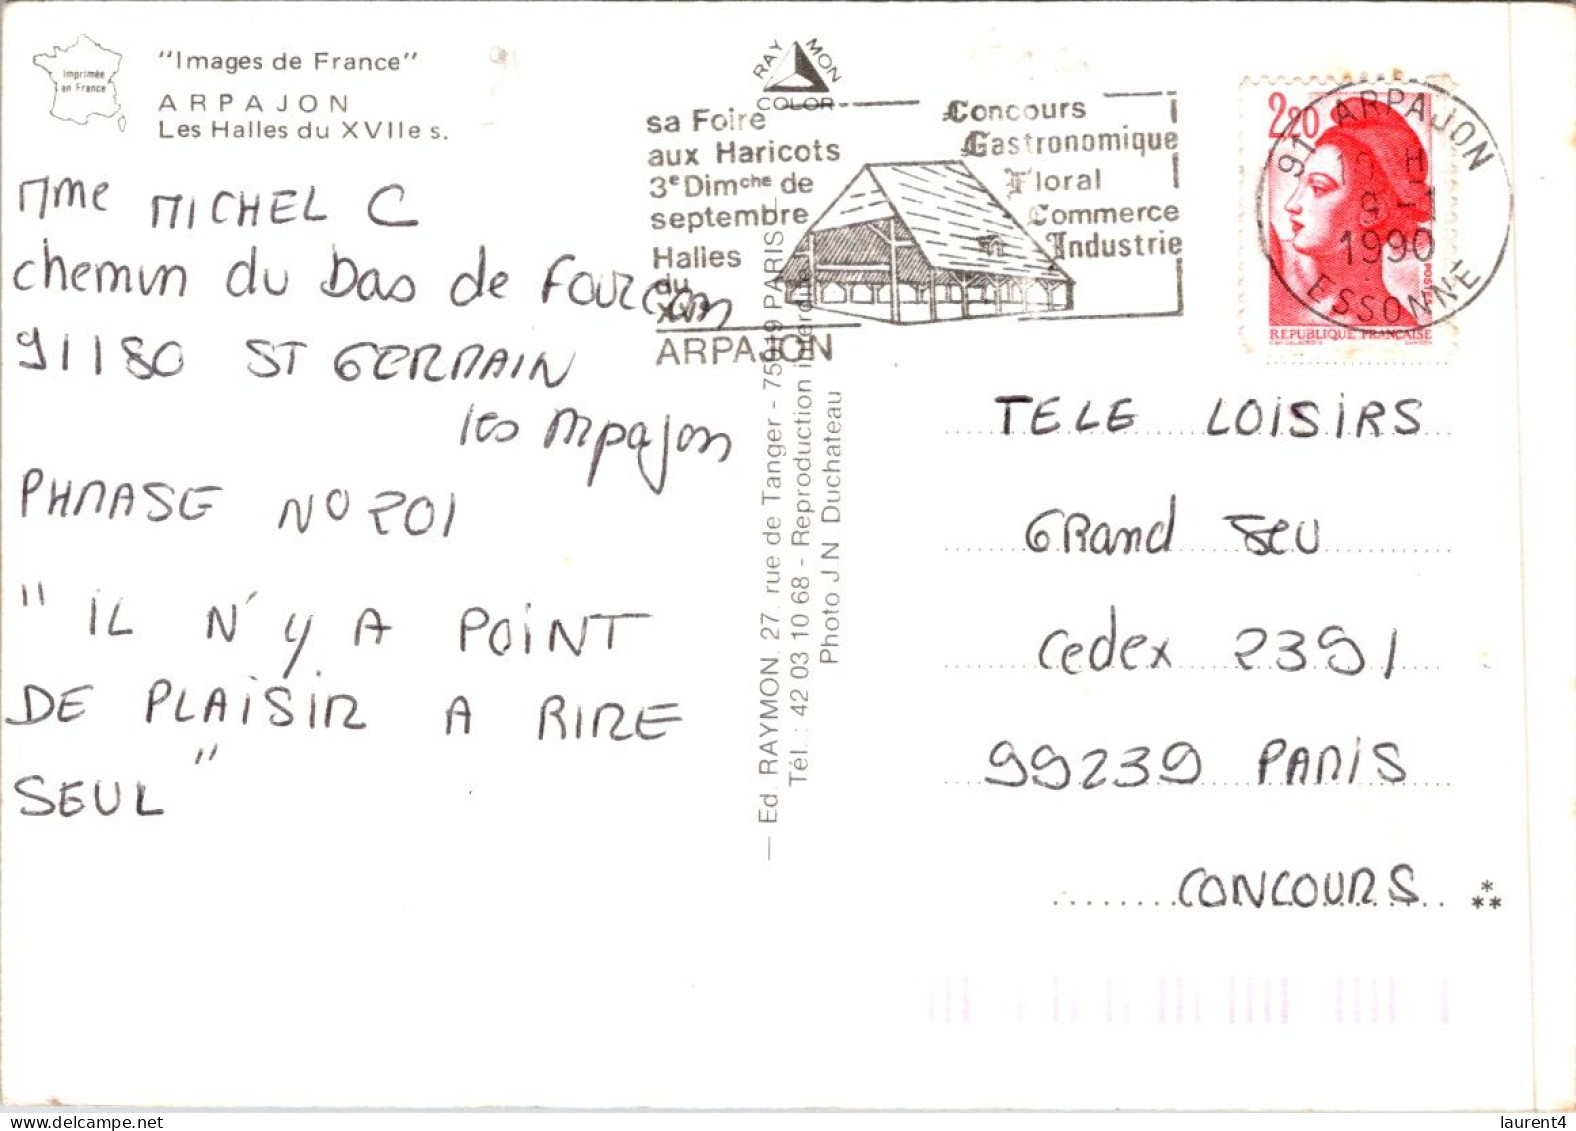 Imprimée
en France
"Images de France"
ARPAJON
Les Halles du XVIIe s.
Mme MICHEL C
chemin du bas de
91180 ST GERMAIN
les Arpajon
PHRASE N° 201
" IL N'Y A POINT
DE PLAISIR A RIRE
SEUL "
RAYMON
COLOR
sa Foire
aux Haricots
3e Dimche de
septembre
Halles
du
ARPAJON
Concours
Gastronomique
Floral
Commerce
Industrie
2,20
POSTES
REPUBLIQUE FRANÇAISE
91 ARPAJON
9 - 1
1990
ESSONNE
— Ed. RAYMON. 27. rue de Tanger - 75019 PARIS
Tél. : 42 03 10 68 - Reproduction interdite
Photo J.N Duchateau
TELE LOISIRS
GRand JEU
Cedex 2391
99239 PARIS
CONCOURS
laurent4